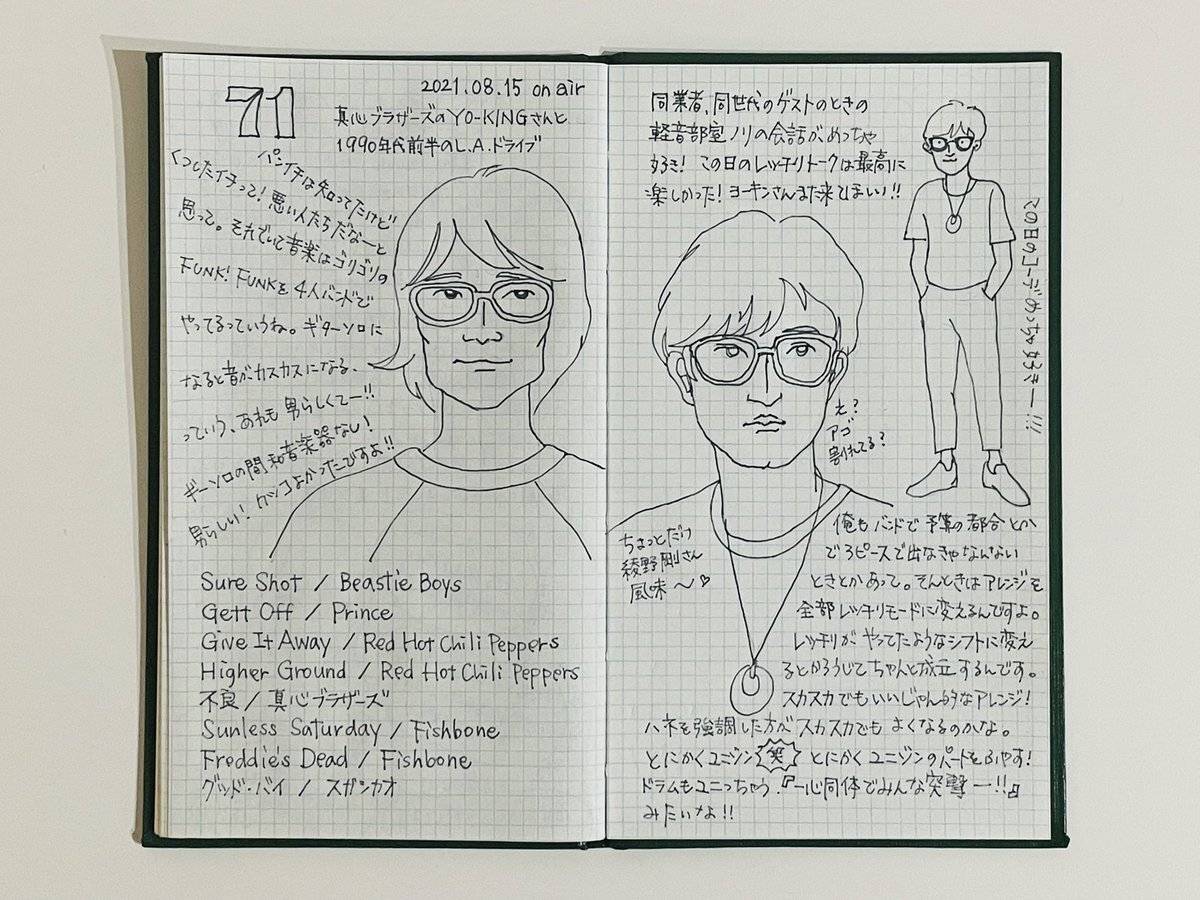 71
2021.08.15 on air
真心ブラザーズのYO-KINGさんと
1990年代前半のL.A.ドライブ
パンイチは知ってたけど
くつしたイチって!悪い人たちだなーと
思って。それでいて音楽はゴリゴリの
FUNK! FUNKを4人バンドで
やってるっていうね。ギターソロに
なると音がカスカスになる、
っていう、あれも男らしくてー!!
ギーソロの間和音楽器なし!
男らしい!カッコよかったですよ!!
Sure Shot / Beastie Boys
Gett Off / Prince
Give It Away / Red Hot Chili Peppers
Higher Ground / Red Hot Chili Peppers
不良 / 真心ブラザーズ
Sunless Saturday / Fishbone
Freddie's Dead / Fishbone
グッド・バイ / スガシカオ
同業者、同世代のゲストのときの
軽音部室ノリの会話がめっちゃ
好き!この日のレッチリトークは最高に
楽しかった!ヨーキンさんまた来てほしい!!
この日のコーデめっちゃ好きー!!!
え?
アゴ
割れてる?
ちょっとだけ
綾野剛さん
風味〜♡
俺もバンドで予算の都合とか
で3ピースで出なきゃなんない
ときとかあって。そんときはアレンジを
全部レッチリモードに変えるんですよ。
レッチリがやってたようなシフトに変え
るとかろうじてちゃんと成立するんです。
スカスカでもいいじゃん的なアレンジ!
ハネを強調した方がスカスカでもよくなるのかな。
とにかくユニゾン笑とにかくユニゾンのパートをふやす!
ドラムもユニっちゃう。『一心同体でみんな突撃ー!!』
みたいな!!